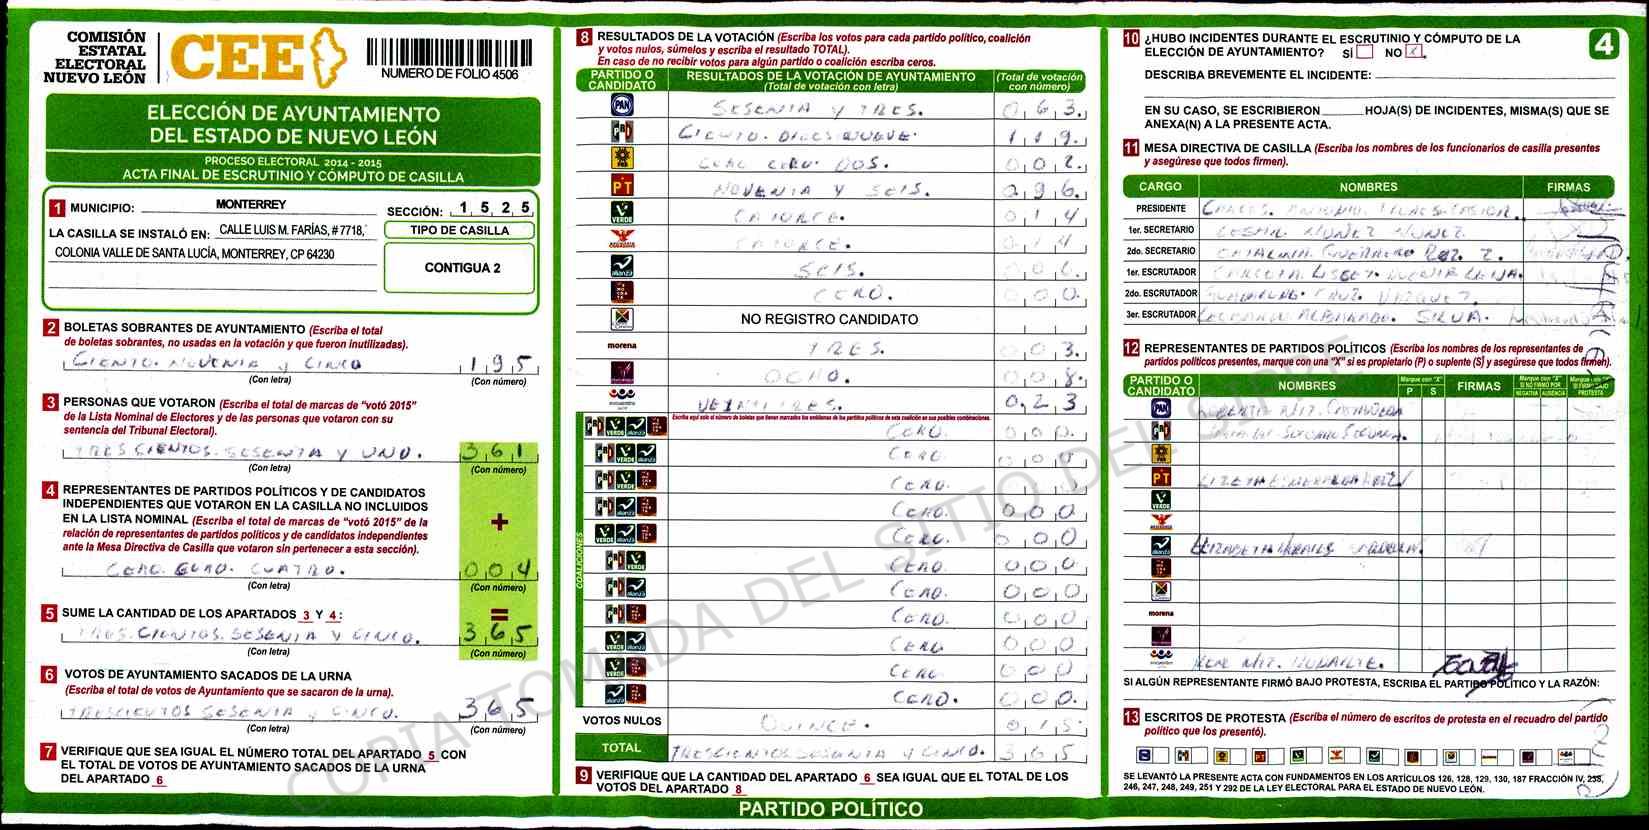 COMISIÓN
ESTATAL
ELECTORAL
NUEVO LEÓN
CEE
NUMERO DE FOLIO 4506
ELECCIÓN DE AYUNTAMIENTO
DEL ESTADO DE NUEVO LEÓN
PROCESO ELECTORAL 2014 - 2015
ACTA FINAL DE ESCRUTINIO Y CÓMPUTO DE CASILLA
1 MUNICIPIO: MONTERREY
SECCIÓN: 1 5 2 5
LA CASILLA SE INSTALÓ EN: CALLE LUIS M. FARÍAS, # 7718,
COLONIA VALLE DE SANTA LUCÍA, MONTERREY, CP 64230
TIPO DE CASILLA
CONTIGUA 2
2 BOLETAS SOBRANTES DE AYUNTAMIENTO (Escriba el total
de boletas sobrantes, no usadas en la votación y que fueron inutilizadas).
CIENTO. NOVENTA y CINCO 1 9 5
(Con letra) (Con número)
3 PERSONAS QUE VOTARON (Escriba el total de marcas de "votó 2015"
de la Lista Nominal de Electores y de las personas que votaron con su
sentencia del Tribunal Electoral).
TRESCIENTOS. SESENTA y UNO. 3 6 1
(Con letra) (Con número)
4 REPRESENTANTES DE PARTIDOS POLÍTICOS Y DE CANDIDATOS
INDEPENDIENTES QUE VOTARON EN LA CASILLA NO INCLUIDOS
EN LA LISTA NOMINAL (Escriba el total de marcas de "votó 2015" de la
relación de representantes de partidos políticos y de candidatos independientes
ante la Mesa Directiva de Casilla que votaron sin pertenecer a esta sección).
+
CERO. CERO. CUATRO. 0 0 4
(Con letra) (Con número)
=
5 SUME LA CANTIDAD DE LOS APARTADOS 3 Y 4:
TRES.CIENTOS. SESENTA y CINCO. 3 6 5
(Con letra) (Con número)
6 VOTOS DE AYUNTAMIENTO SACADOS DE LA URNA
(Escriba el total de votos de Ayuntamiento que se sacaron de la urna).
TRESCIENTOS SESENTA y CINCO. 3 6 5
(Con letra) (Con número)
7 VERIFIQUE QUE SEA IGUAL EL NÚMERO TOTAL DEL APARTADO 5 CON
EL TOTAL DE VOTOS DE AYUNTAMIENTO SACADOS DE LA URNA
DEL APARTADO 6
8 RESULTADOS DE LA VOTACIÓN (Escriba los votos para cada partido político, coalición
y votos nulos, súmelos y escriba el resultado TOTAL).
En caso de no recibir votos para algún partido o coalición escriba ceros.
PARTIDO O CANDIDATO
RESULTADOS DE LA VOTACIÓN DE AYUNTAMIENTO
(Total de votación con letra)
(Total de votación con número)
PAN SESENTA y TRES. 0 6 3.
PRI CIENTO. DIECINUEVE. 1 1 9.
PRD CERO CERO. DOS. 0 0 2.
PT NOVENTA y SEIS. 0 9 6.
VERDE CATORCE. 0 1 4
CATORCE. 0 1 4
alianza SEIS. 0 0 6.
CERO. 0 0 0.
NO REGISTRO CANDIDATO
morena TRES. 0 0 3.
OCHO. 0 0 8.
encuentro VEINTITRES. 0 2 3
COALICIONES
Escriba aquí solo el número de boletas que tienen marcados los emblemas de los partidos políticos de esta coalición en sus posibles combinaciones.
CERO. 0 0 0.
CERO. 0 0 0
CERO. 0 0 0
CERO. 0 0 0
CERO. 0 0 0
CERO. 0 0 0
CERO. 0 0 0
CERO. 0 0 0
CERO 0 0 0
CERO 0 0 0
CERO. 0 0 0.
VOTOS NULOS QUINCE. 0 1 5
TOTAL TRESCIENTOS SESENTA y CINCO. 3 6 5
9 VERIFIQUE QUE LA CANTIDAD DEL APARTADO 6 SEA IGUAL QUE EL TOTAL DE LOS
VOTOS DEL APARTADO 8
PARTIDO POLÍTICO
10 ¿HUBO INCIDENTES DURANTE EL ESCRUTINIO Y CÓMPUTO DE LA
ELECCIÓN DE AYUNTAMIENTO? SÍ NO X
4
DESCRIBA BREVEMENTE EL INCIDENTE:
EN SU CASO, SE ESCRIBIERON HOJA(S) DE INCIDENTES, MISMA(S) QUE SE
ANEXA(N) A LA PRESENTE ACTA.
11 MESA DIRECTIVA DE CASILLA (Escriba los nombres de los funcionarios de casilla presentes
y asegúrese que todos firmen).
CARGO NOMBRES FIRMAS
PRESIDENTE
1er. SECRETARIO NUÑEZ NUÑEZ.
2do. SECRETARIO GUERRERO
1er. ESCRUTADOR
2do. ESCRUTADOR CRUZ VAZQUEZ.
3er. ESCRUTADOR SILVA.
12 REPRESENTANTES DE PARTIDOS POLÍTICOS (Escriba los nombres de los representantes de
partidos políticos presentes, marque con una "X" si es propietario (P) o suplente (S) y asegúrese que todos firmen).
PARTIDO O CANDIDATO NOMBRES Marque con "X" P S FIRMAS Marque con "X" SI NO FIRMÓ POR NEGATIVA AUSENCIA
PAN
PRI
PRD
PT LIZETH ESMERALDA
VERDE
alianza ELIZABETH
morena
encuentro
SI ALGÚN REPRESENTANTE FIRMÓ BAJO PROTESTA, ESCRIBA EL PARTIDO POLÍTICO Y LA RAZÓN:
13 ESCRITOS DE PROTESTA (Escriba el número de escritos de protesta en el recuadro del partido
político que los presentó).
SE LEVANTÓ LA PRESENTE ACTA CON FUNDAMENTOS EN LOS ARTÍCULOS 126, 128, 129, 130, 187 FRACCIÓN IV, 238,
246, 247, 248, 249, 251 Y 292 DE LA LEY ELECTORAL PARA EL ESTADO DE NUEVO LEÓN.
COPIA TOMADA DEL SITIO DEL SIPRE